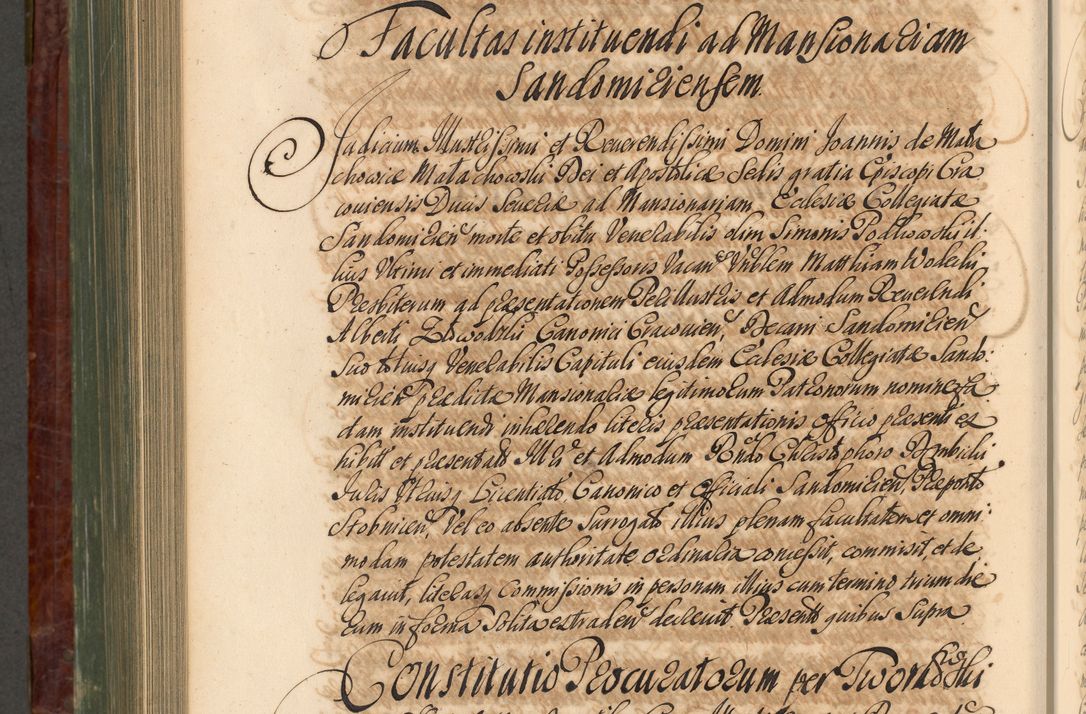 Facultas instituendi ad Mansionariam
Sandomiriensem.
Judicium Illustrissimi et Reverendissimi Domini Joannis de Mała
chowice Małachowski Dei et Apostolicæ Sedis gratia Episcopi Cra
coviensis Ducis Severiæ ad Mansionariam Ecclesiæ Collegiatæ
Sandomirien morte et obitu Venerabilis olim Simonis Podlwowski il:
lius Ultimi et immediati Possessoris Vacan Vnblem Matthiam Woleclii
Presbiterum ad præsentationem Perillustris et Admodum Reverendi
Alberti Canonici Cracovien, Decani Sandomirien
Suo totiusq Venerabilis Capituli eiusdem Ecclesiæ Collegiatæ Sando:
mirien prædictæ Mansionariæ legitimorum Patronorum nomine fa
ctam instituendi inhærendo literis præsentationis officio præsenti ex
hibitt et præsentatt Illri et Admodum Rndo Christophoro Dembicki
Juris Utriusq Licentiato, Canonico et Officiali Sandomirien, Præposto
Stobnicen, Vel eo absente Surrogato illius plenam facultatem et omni:
modam potestatem authoritate ordinaria concessit, commisit et de
legavit, literasq Commissionis in personam illius cum termino trium die
rum in forma Solita extraden decrevit. Præsentt quibus Supra
Constitutio Procuratorum per